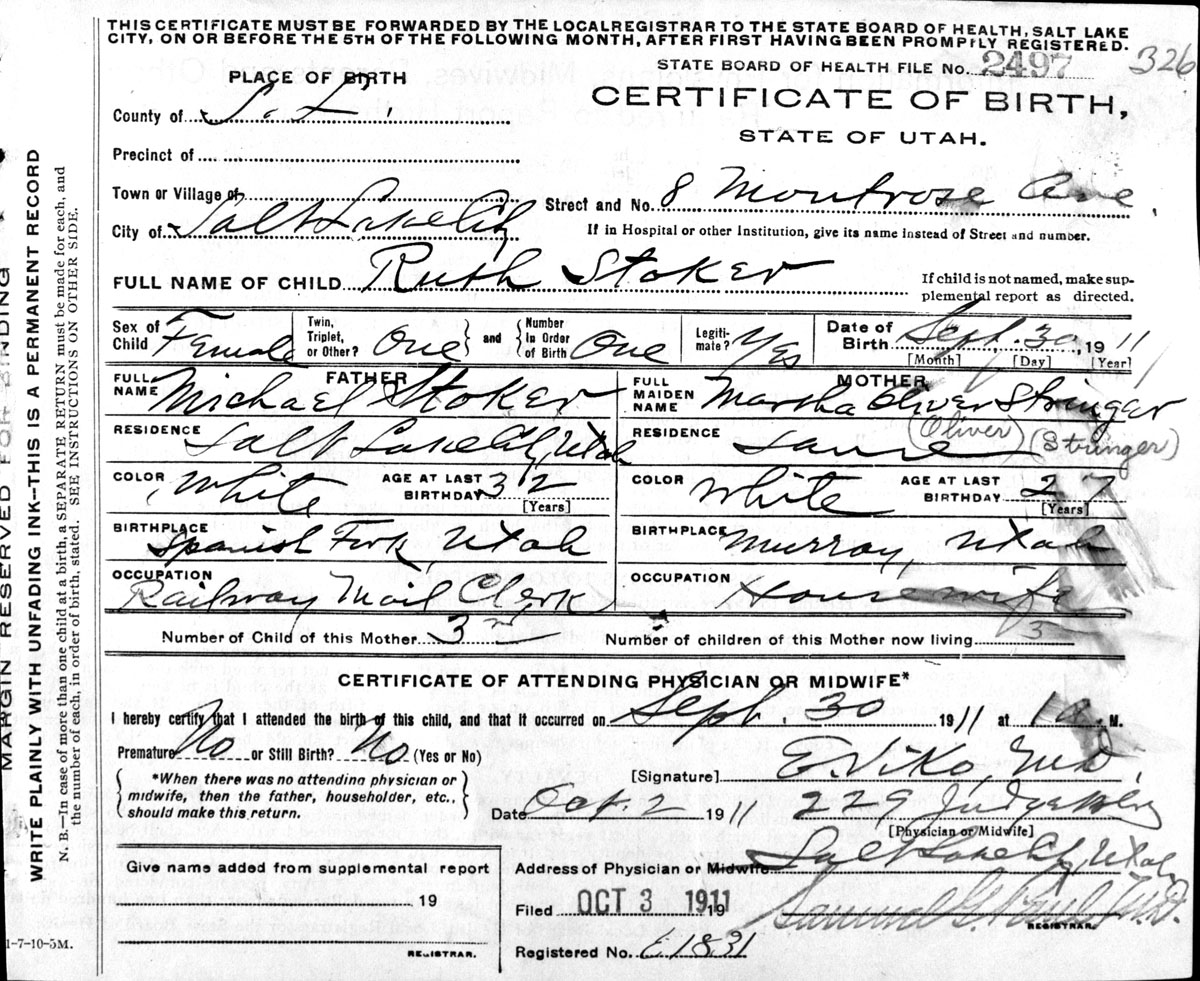 THIS CERTIFICATE MUST BE FORWARDED BY THE LOCAL REGISTRAR TO THE STATE BOARD OF HEALTH, SALT LAKE
CITY, ON OR BEFORE THE 5TH OF THE FOLLOWING MONTH, AFTER FIRST HAVING BEEN PROMPTLY REGISTERED.
STATE BOARD OF HEALTH FILE No. 2497 326
PLACE OF BIRTH
CERTIFICATE OF BIRTH,
County of S. L.
STATE OF UTAH.
Precinct of
Town or Village of
Street and No. 8 Montrose Ave.
City of Salt Lake City
If in Hospital or other Institution, give its name instead of Street and number.
FULL NAME OF CHILD Ruth Stoker
If child is not named, make sup-
plemental report as directed.
Sex of Child Female Twin, Triplet, or Other? One and Number In Order of Birth One Legiti- mate? Yes Date of Birth Sept. 30, 1911
[Month] [Day] [Year]
FATHER MOTHER
FULL NAME Michael Stoker FULL MAIDEN NAME Martha Oliver Stringar
(Oliver) (Stringer)
RESIDENCE Salt Lake City, Utah RESIDENCE Same
COLOR White AGE AT LAST BIRTHDAY 32 [Years] COLOR White AGE AT LAST BIRTHDAY 27 [Years]
BIRTHPLACE Spanish Fork, Utah BIRTHPLACE Murray, Utah
OCCUPATION Railway Mail Clerk OCCUPATION Housewife
Number of Child of this Mother 3rd Number of children of this Mother now living 3
CERTIFICATE OF ATTENDING PHYSICIAN OR MIDWIFE*
I hereby certify that I attended the birth of this child, and that it occurred on Sept. 30 1911 at 1 a. M.
Premature No or Still Birth? No (Yes or No)
[Signature] E. Viko, M.D.
*When there was no attending physician or
midwife, then the father, householder, etc.,
should make this return.
Date Oct. 2 1911 229 Judge Bldg
[Physician or Midwife]
Address of Physician or Midwife Salt Lake City, Utah
Give name added from supplemental report
19
REGISTRAR.
Filed OCT 3 1911 19 Samuel G. Paul, M.D.
REGISTRAR.
Registered No. E1831
1-7-10-5M.
MARGIN RESERVED FOR BINDING
WRITE PLAINLY WITH UNFADING INK—THIS IS A PERMANENT RECORD
N. B.—In case of more than one child at a birth, a SEPARATE RETURN must be made for each, and
the number of each, in order of birth, stated. SEE INSTRUCTION ON OTHER SIDE.